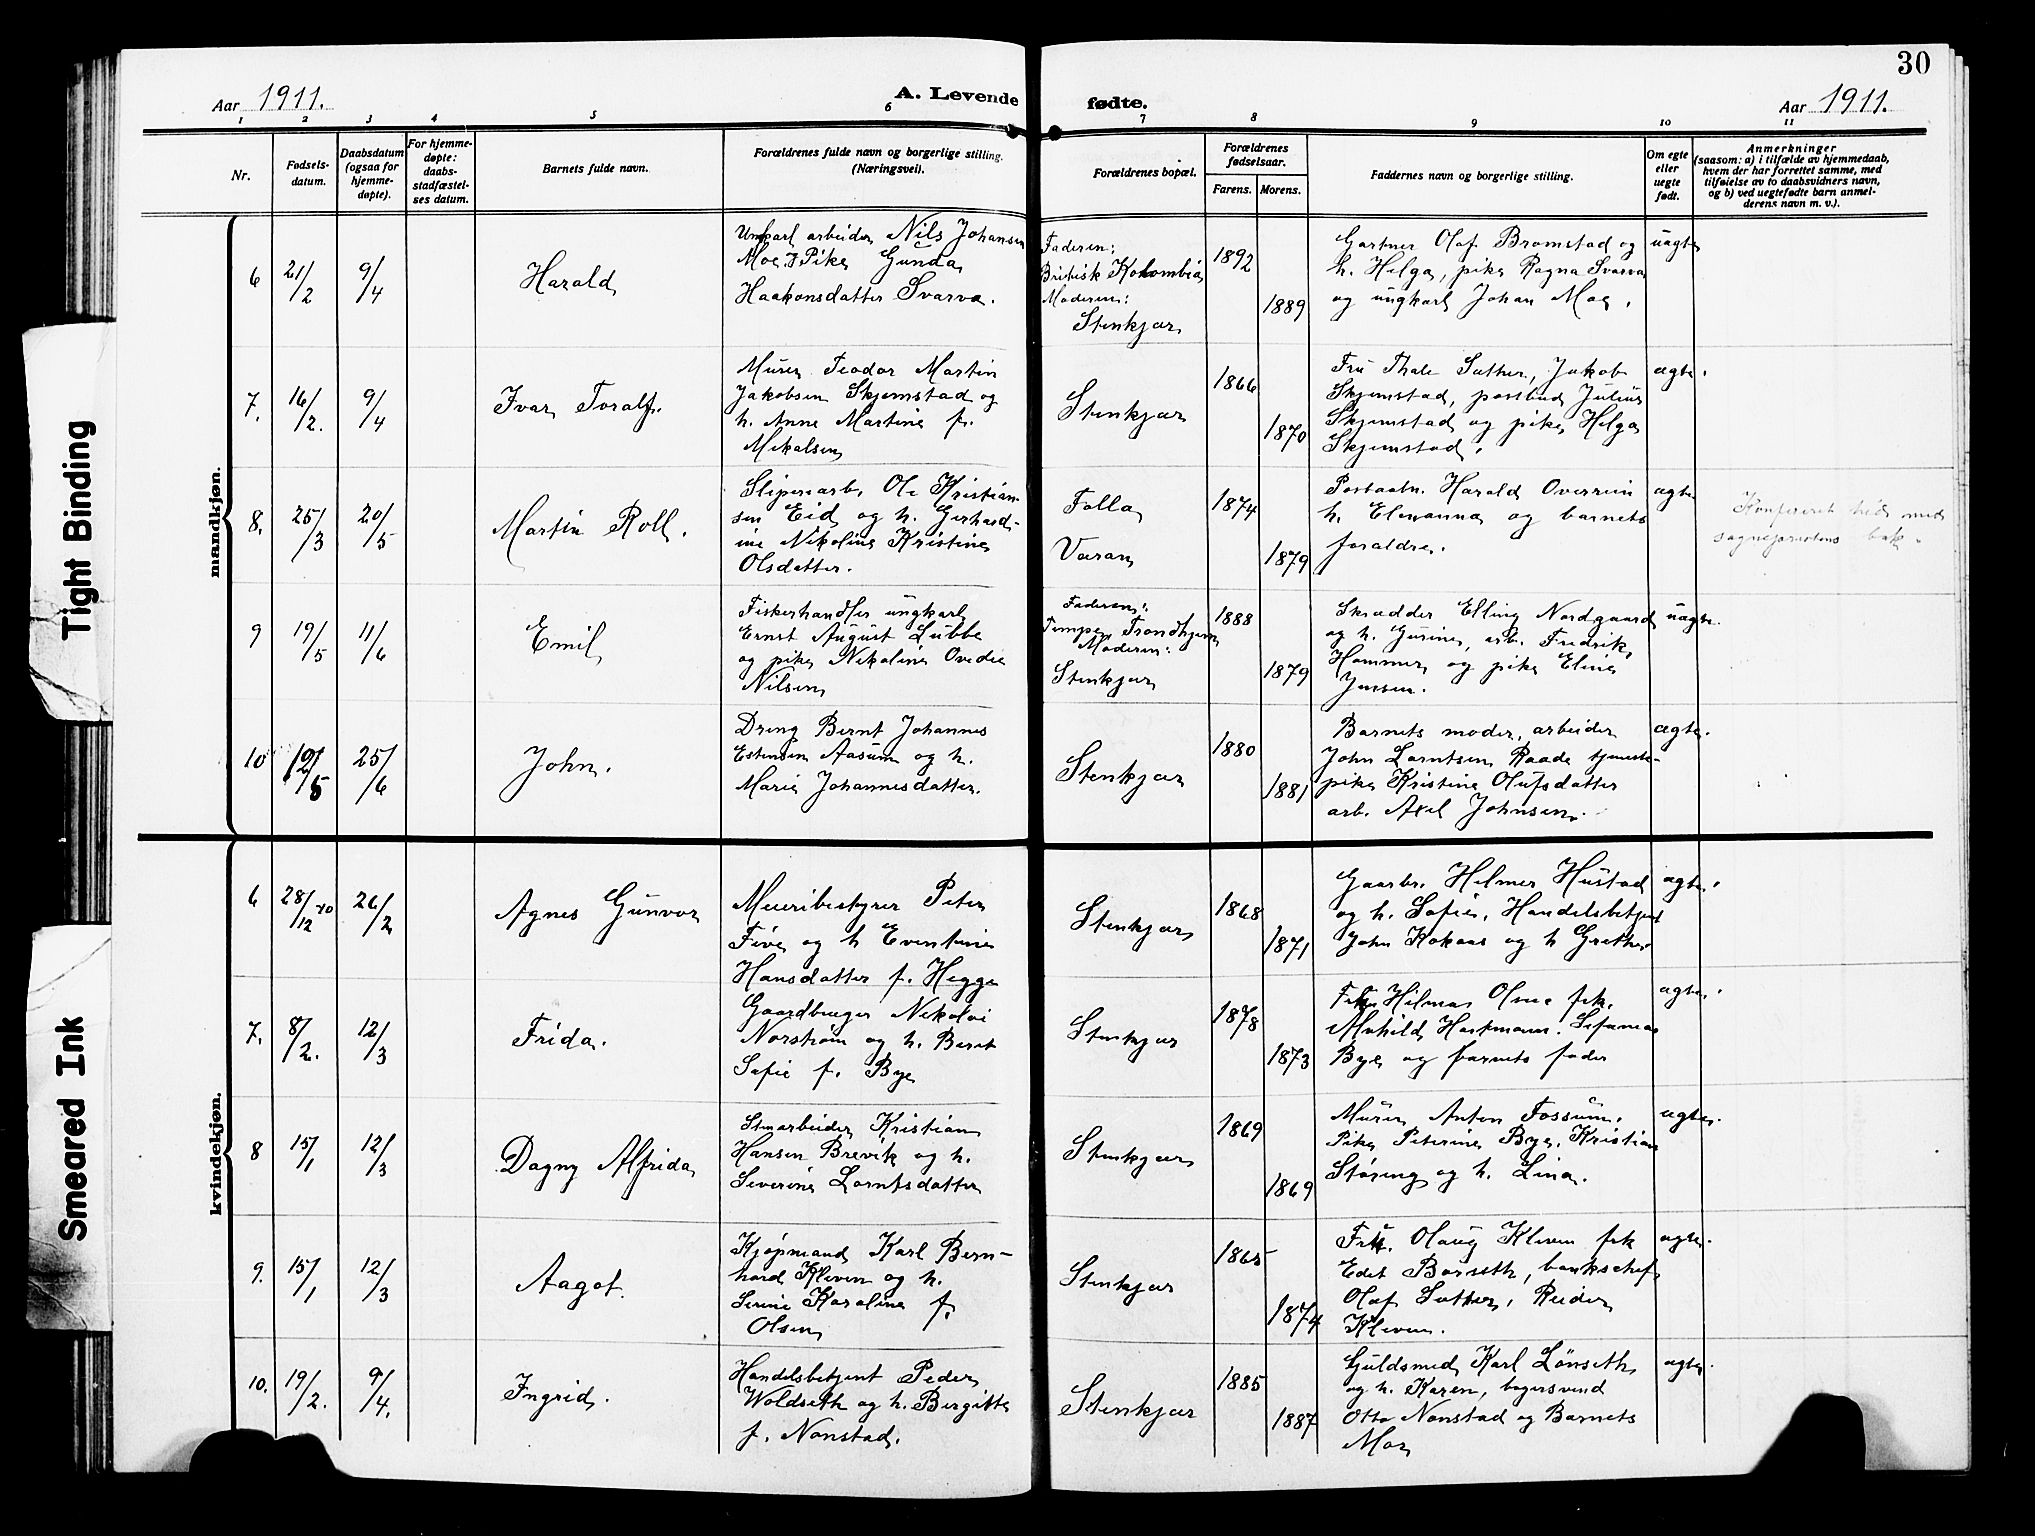 30
Aar 1911.
A. Levende fødte.
Aar 1911.
1 2 3 4 5 6 7 8 9 10 11
Nr.
Fødsels-
datum.
Daabsdatum
(ogsaa for
hjemme-
døpte).
For hjemme-
døpte:
daabs-
stadfæstel-
ses datum.
Barnets fulde navn.
Forældrenes fulde navn og borgerlige stilling.
(Næringsvei).
Forældrenes bopæl.
Forældrenes
fødselsaar.
Farens. Morens.
Faddernes navn og borgerlige stilling.
Om egte
eller
uegte
født.
Anmerkninger
(saasom: a) i tilfælde av hjemmedaab,
hvem der har forrettet samme, med
tilføielse av to daabsvidners navn,
og b) ved uegtefødte barn anmel-
derens navn m. v.).
mandkjøn.
6 21/2 9/4
Harald
Unkarl arbeider Nils Johansen
Moe, Pike Gunda
Haakonsdatter Svarva.
Faderen:
Britisk Kolombia
Moderen:
Stenkjær
1892
1889
Gartner Olaf Bromstad og
h. Helga, pike Ragna Svarva
og ungkarl Johan Moe.
uægte
7. 16/2. 9/4
Ivar Toralf.
Murer Teodor Martin
Jakobsen Skjemstad og
h. Anne Martine f.
Mikalsen
Stenkjær
1866
1870
Fru Thale Sæther, Jakob
Skjemstad, postbud Julius
Skjemstad og pike Helga
Skjemstad.
ægte.
8. 25/3 20/5
Martin Roll.
Sliperiarb. Ole Kristian-
sen Eid og h. Gerhard-
ine Nikoline Kristine
Olsdatter.
Folla
Væran
1874
1879
Postaabn. Harald Overrein
h. Elenanna og barnets
forældre.
ægte
Konfereret hid med
sogneprestens bok.
9 19/5 11/6
Emil
Fiskerhandler ungkarl
Ernst August Lubbe
og pike Nikoline Ovedie
Nilsen
Faderen:
Tempe, Trondhjem
Moderen:
Stenkjær
1888
1879
Skrædder Elling Nordgaard
og h. Gurine, arb. Fredrik
Hammer og pike Eline
Jensen.
uægte.
10 12/5 25/6
John.
Dreng Bernt Johannes
Estensen Aasum og h.
Marie Johannesdatter.
Stenkjær
1880
1881
Barnets moder, arbeider
John Lorntsen Raade tjeneste-
pike Kristine Olufsdatter
arb. Axel Johnsen.
ægte.
kvindekjøn.
6 28/12 10 26/2
Agnes Gunvor
Meieribestyrer Peter
Five og h Eventine
Hansdatter f. Hegge
Stenkjær
1868
1871
Gaarbr. Helmer Hustad
og h. Sofie, Handelsbetjent
John Kokaas og h Grethe.
ægte.
7. 8/2. 12/3
Frida.
Gaardbruger Nikolai
Norstrøm og h. Berit
Sofie f. Bye
Stenkjær
1878
1873
Hilma Olsne frk.
Hartmann.
Bye og barnets fader
ægte.
8 15/1 12/3
Dagny Alfrida
Stenarbeider Kristian
Hansen Brevik og h.
Severine Lorntsdatter
Stenkjær
1869
1869
Murer Anton Fossum.
Pike Peterine Bye, Kristian
Støring og h. Lina.
ægte.
9. 15/1 12/3
Aagot.
Kjøpmand Karl Bern-
hard Kleven og h.
Serine Karoline f.
Olsen
Stenkjær
1865
1874
Fru. Olaug Kleven frk
Edet Barseth, bankchef
Olaf Sæther, Reidar
Kleven.
ægte.
10. 19/2. 9/4.
Ingrid.
Handelsbetjent Peder
Woldseth og h. Bergitte
f. Nonstad.
Stenkjær
1885
1887
Guldsmed Karl Lønseth
og h. Karen, bagersvend
Otto Nonstad og Barnets
Mor
ægte.
Tight Binding
Smeared Ink